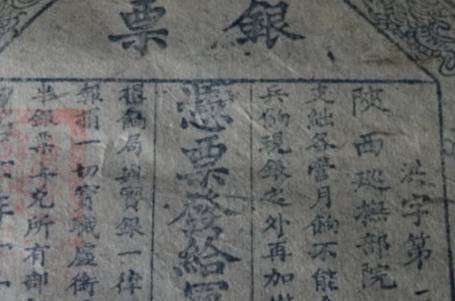 銀票
洪字第一
陝西巡撫部院
支絀各營月餉不能
兵餉現銀之外再加
憑票發給軍
糧餉局與實銀一律
報捐一切實職虛銜
半銀票半兌所有部